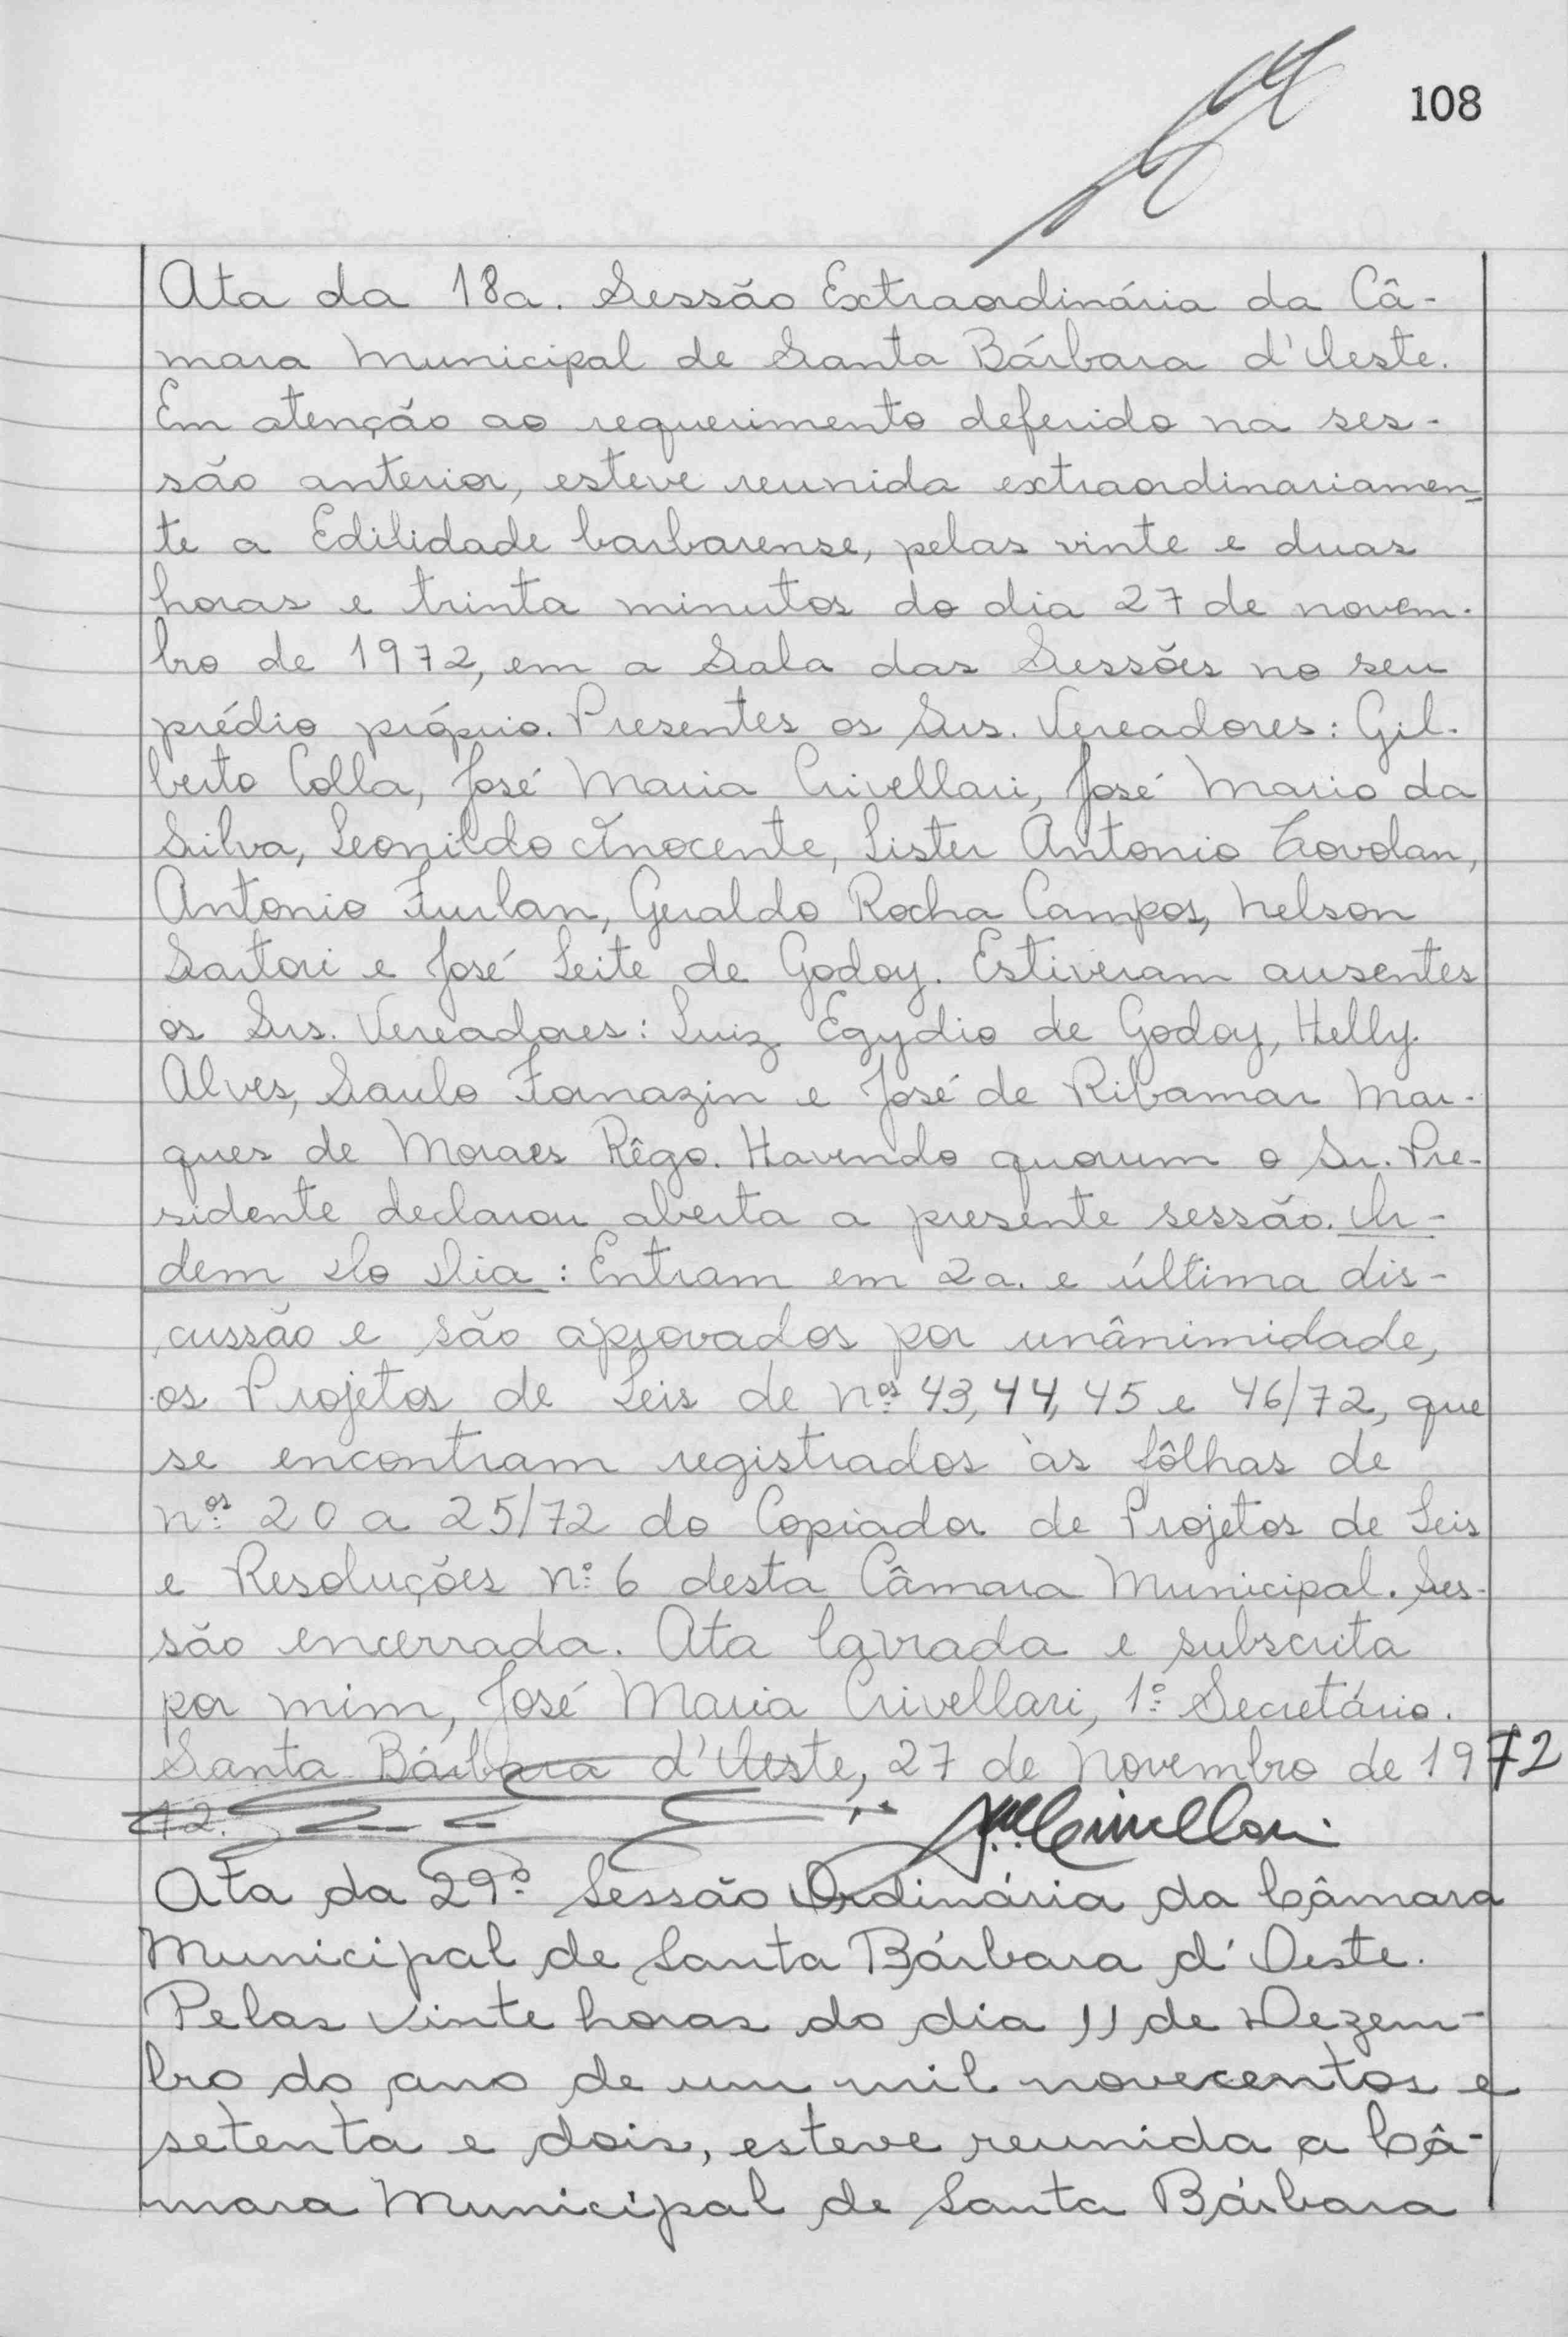 108
Ata da 18a. Sessão Extraordinária da Câ-
mara Municipal de Santa Bárbara d'Oeste.
Em atenção ao requerimento deferido na ses-
são anterior, esteve reunida extraordinariamen-
te a Edilidade barbarense, pelas vinte e duas
horas e trinta minutos do dia 27 de novem-
bro de 1972, em a Sala das Sessões no seu
prédio próprio. Presentes os Srs. Vereadores: Gil-
berto Colla, José Maria Crivellari, José Mario da
Silva, Leonildo Inocente, Lister Antonio Tovolan,
Antonio Furlan, Geraldo Rocha Campos, Nelson
Sartori e José Leite de Godoy. Estiveram ausentes
os Srs. Vereadores: Luiz Egydio de Godoy, Helly
Alves, Saulo Fornazin e José de Ribamar Mar-
ques de Moraes Rêgo. Havendo quorum o Sr. Pre-
sidente declarou aberta a presente sessão. Or-
dem do Dia: Entram em 2a. e última dis-
cussão e são aprovados por unânimidade,
os Projetos de Leis de nºs 43, 44, 45 e 46/72, que
se encontram registrados às fôlhas de
nºs 20 a 25/72 do Copiador de Projetos de Leis
e Resoluções nº 6 desta Câmara Municipal. Ses-
são encerrada. Ata lavrada e subscrita
por mim, José Maria Crivellari, 1º Secretário.
Santa Bárbara d'Oeste, 27 de Novembro de 1972
72. JMCrivellari
Ata da 29º Sessão Ordinária da Câmara
Municipal de Santa Bárbara d'Oeste.
Pelas vinte horas do dia 11 de Dezem-
bro do ano de um mil novecentos e
setenta e dois, esteve reunida a Câ-
mara Municipal de Santa Bárbara